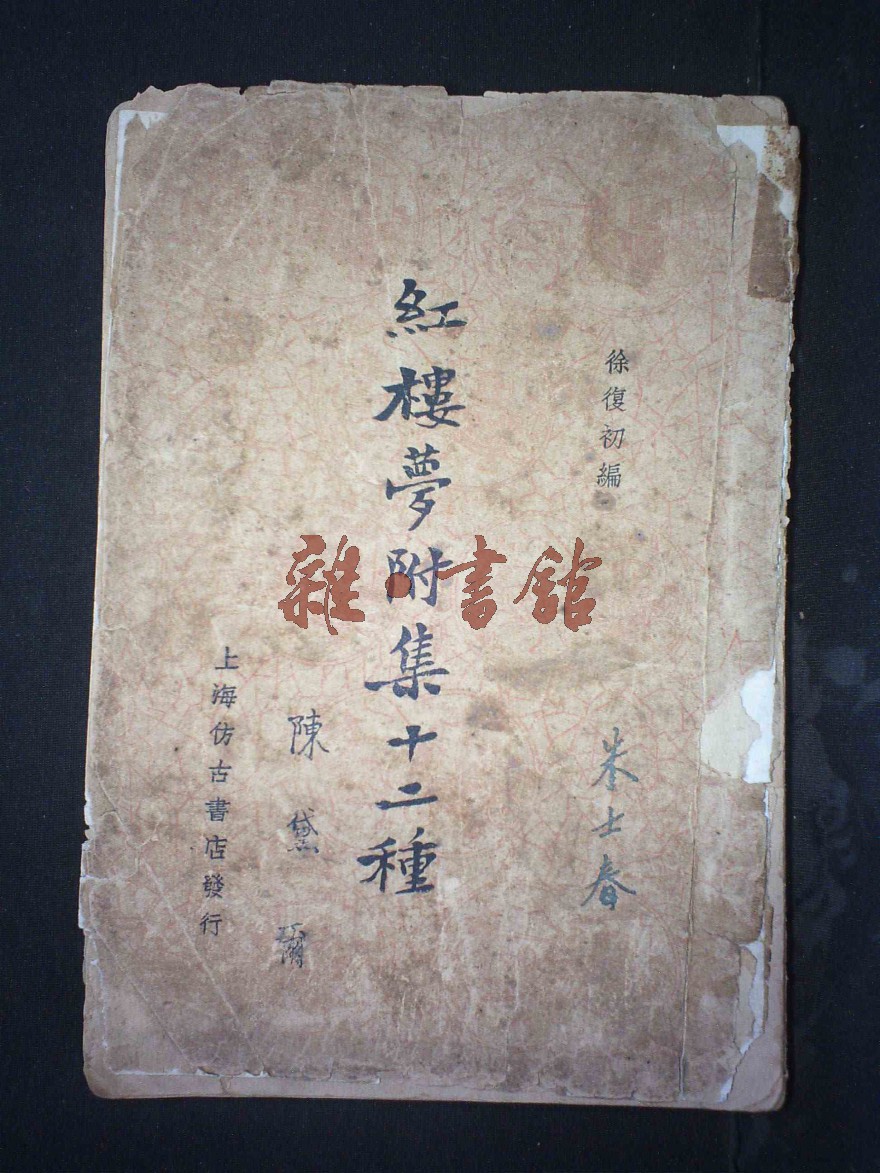 徐復初編
朱士春
紅樓夢附集十二種
陳黛
上海仿古書店發行
雜·書館